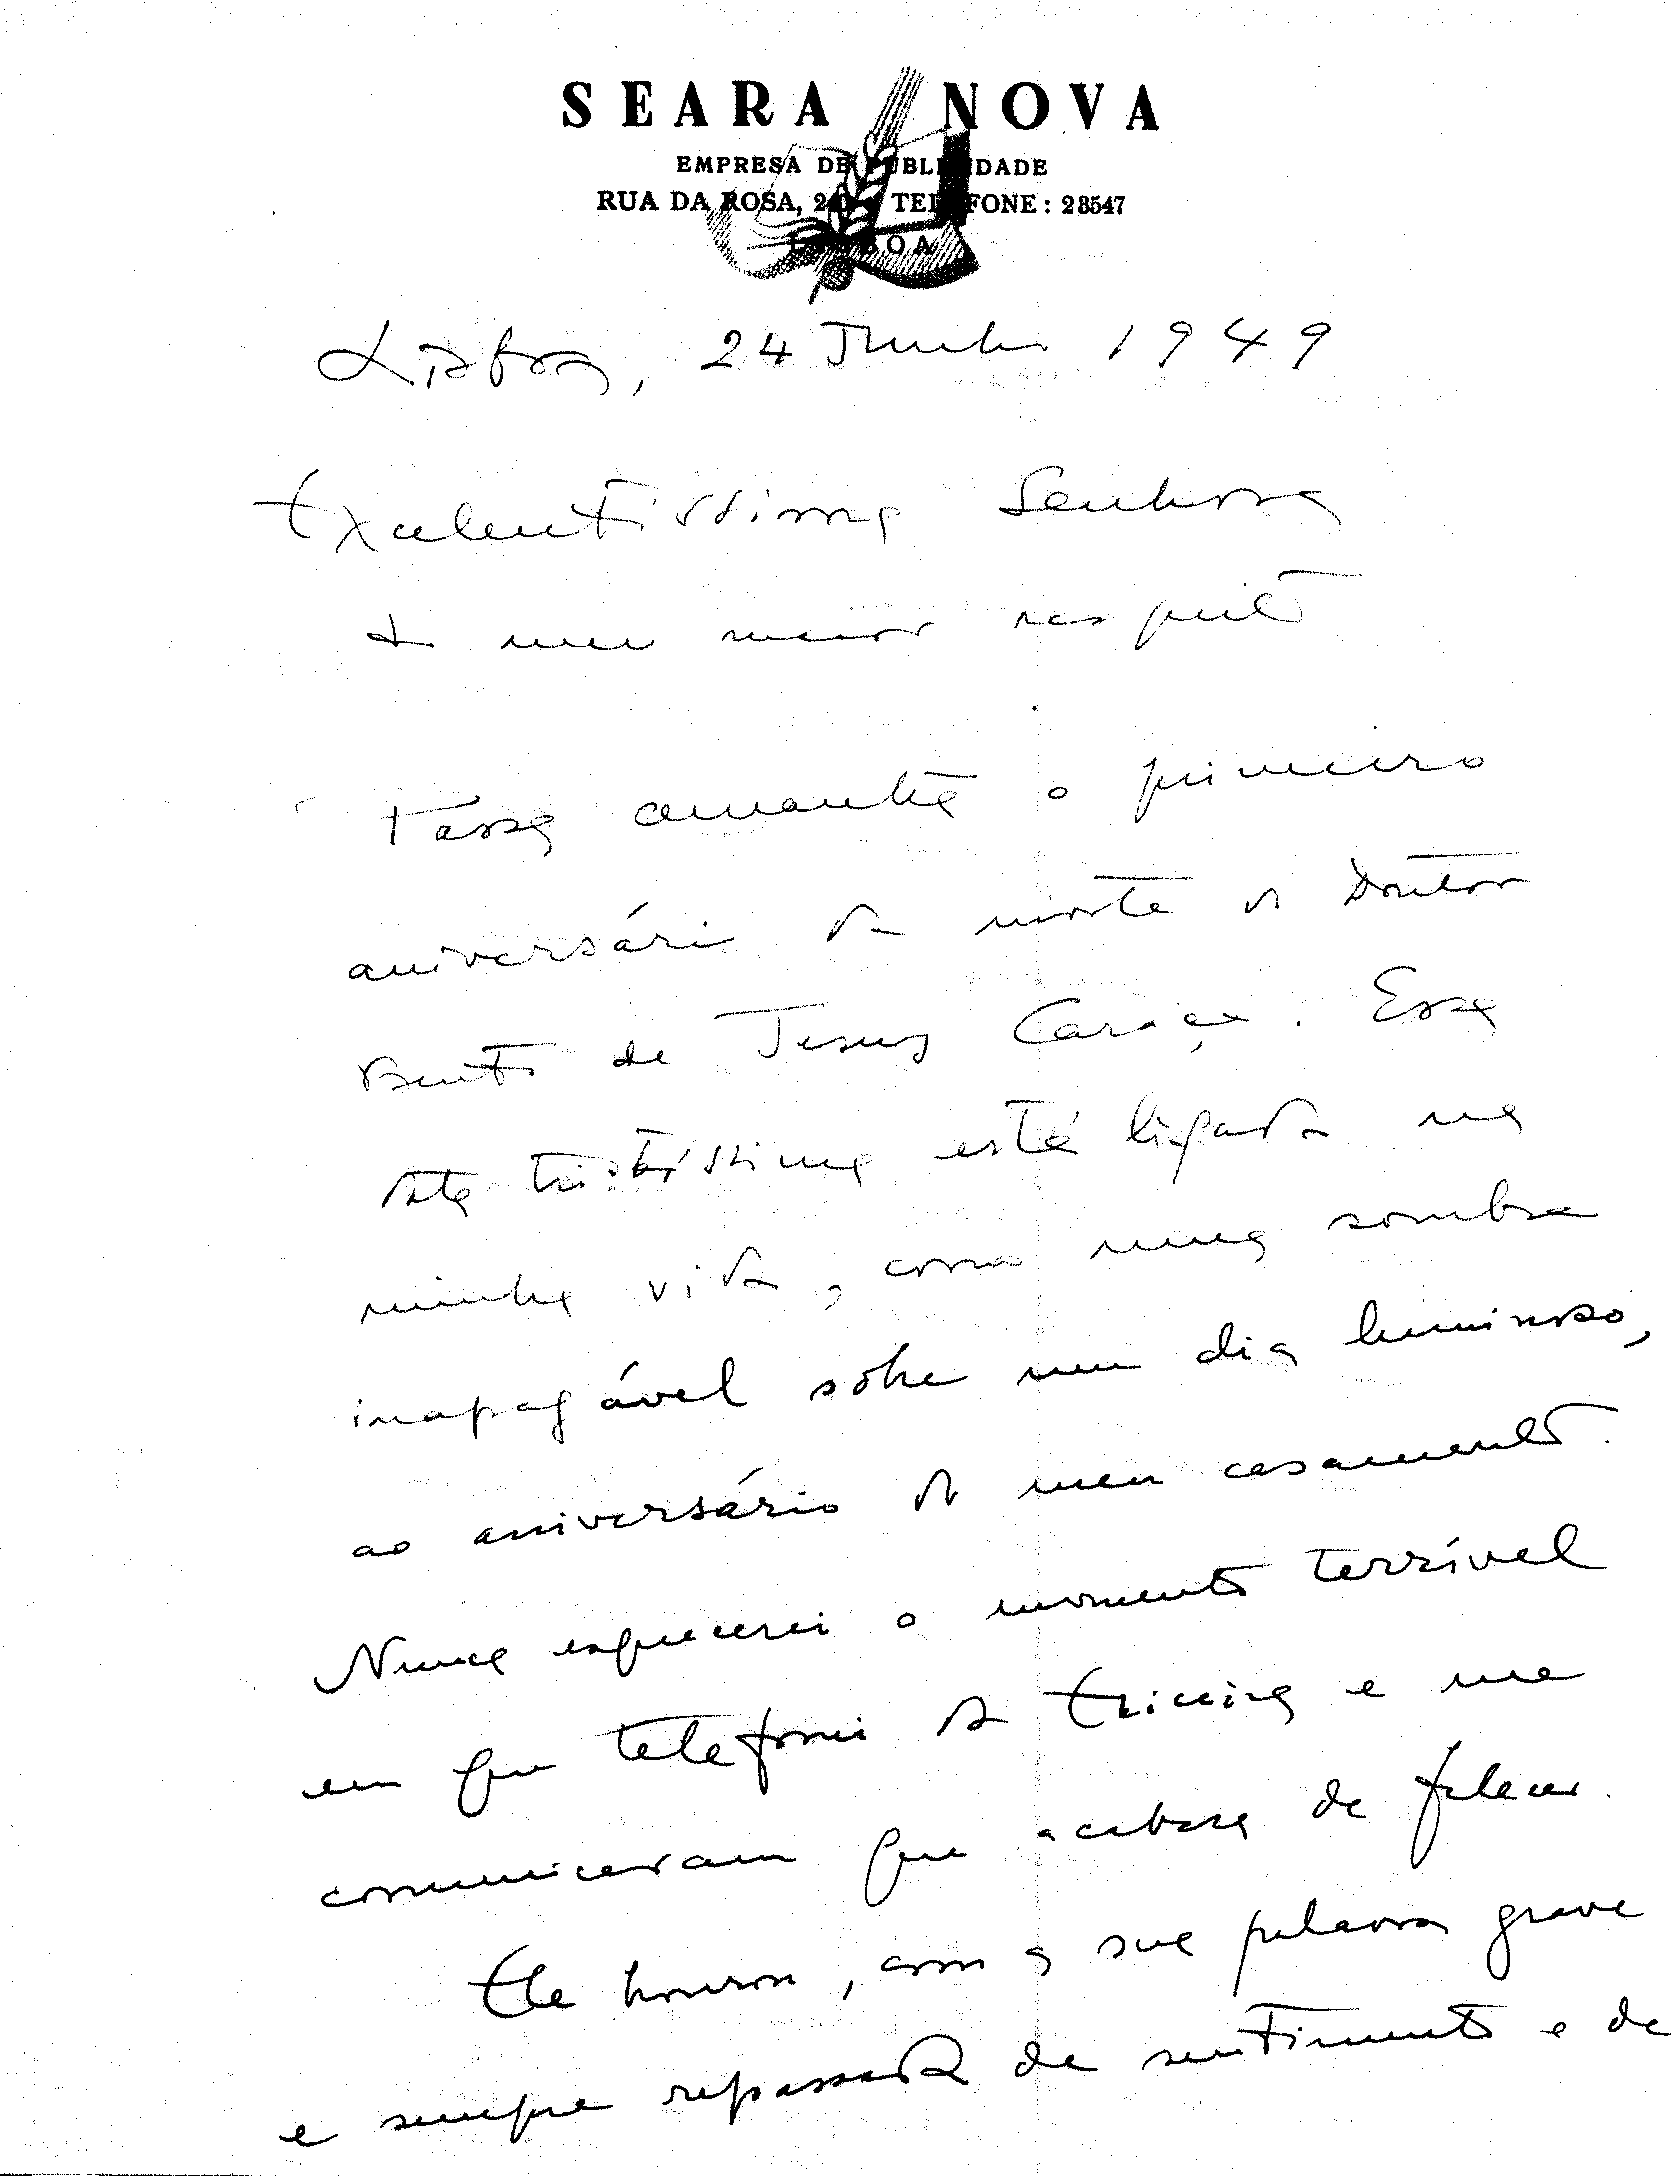 SEARA NOVA
EMPRESA DE PUBLICIDADE
RUA DA ROSA, TELEFONE: 28547
LISBOA
Lisboa, 24 Junho 1949
Excelentíssima Senhora
e meu maior respeito
Passa amanhã o primeiro
aniversário da morte do Doutor
Bento de Jesus Caraça. Essa
data tristíssima está ligada na
minha vida, como uma sombra
inapagável sôbre um dia luminoso,
ao aniversário do meu casamento.
Nunca esquecerei o momento terrível
em que telefonei da Ericeira e me
comunicaram que acabara de falecer.
Ele honrou, com a sua palavra grave
e sempre repassada de sentimento e de